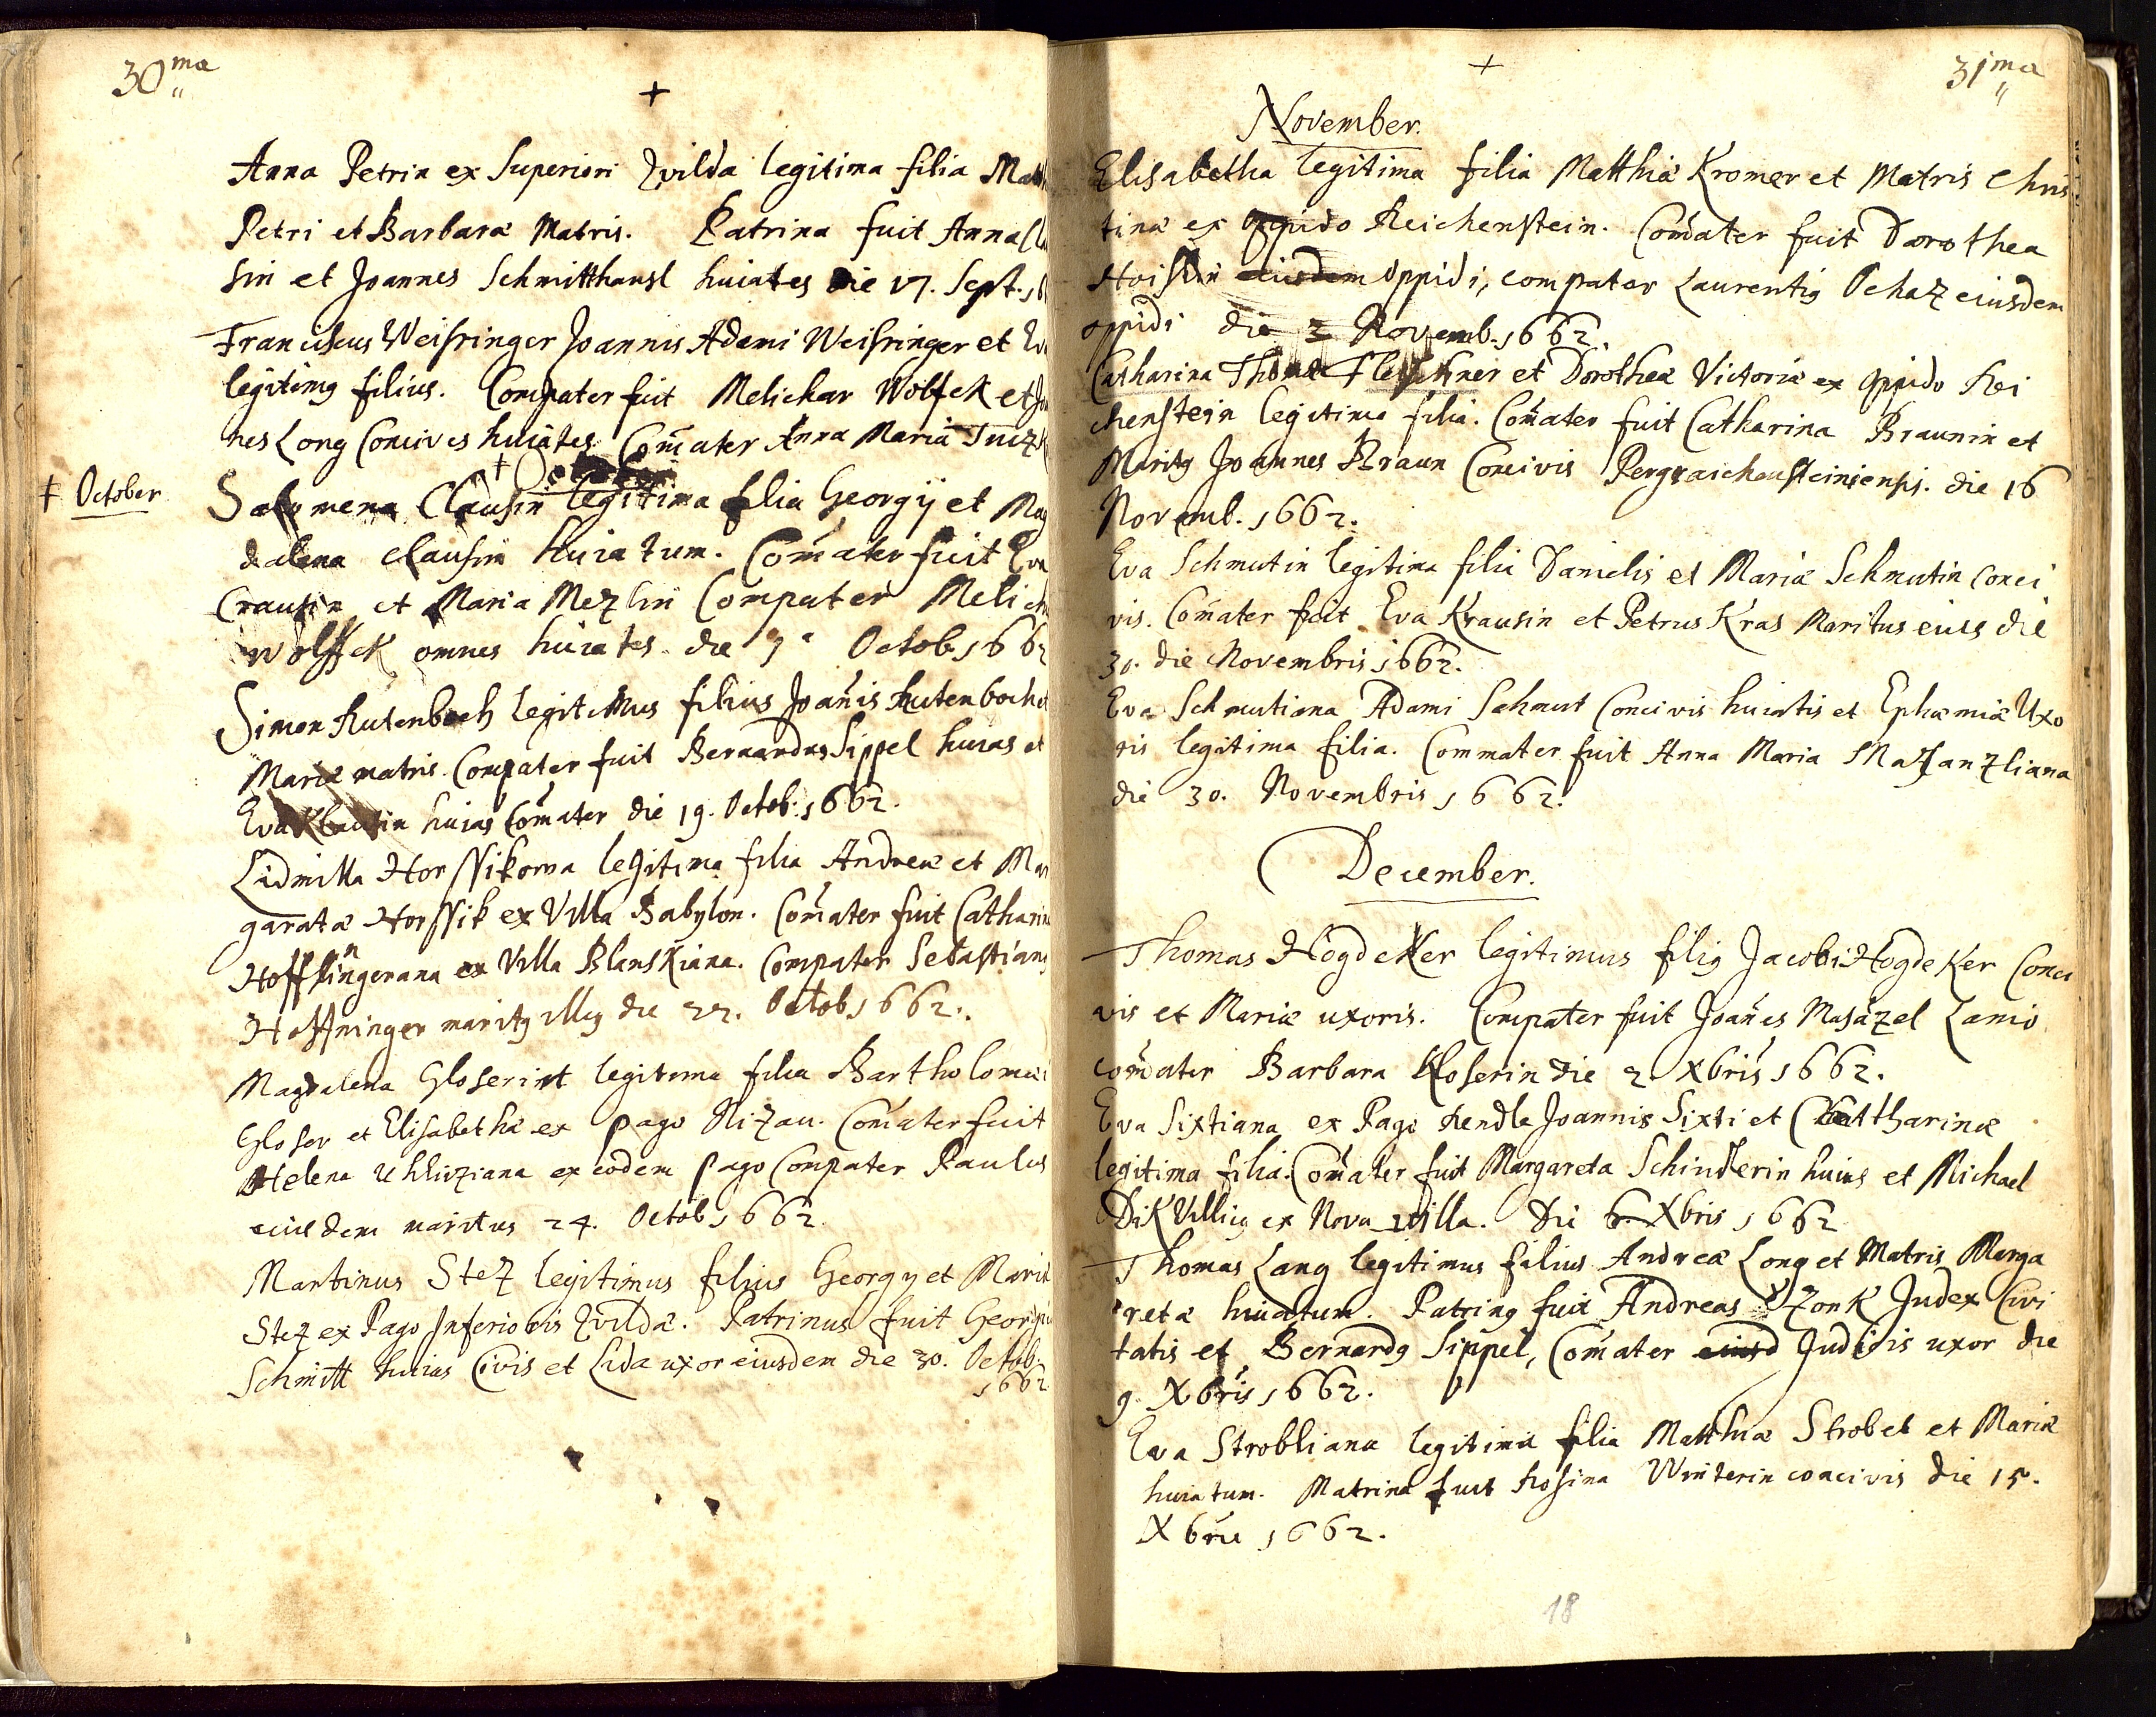 30ma
+
Anna Petrin ex Superiori Zvilda legitima filia
Petri et Barbaræ Matris. Patrina fuit Anna
sin et Joannes Schmitthansl huiates die 17. Sept.
Franciscus Weisringer Joannis Adami Weisringer et
legitimq filius. Compater fuit Melichar Wolfck et
nes Long Concives huiates Com̃ater Anna Maria
‡ October
Salomena Clausin legitima filia Georgÿ et Mag
dalena Clausin huiatum. Com̃ater fuit Eva
Crausin et Maria Mezlin Compater
Wolffck omnes huiates die 9a Octob 1662
Simon Rutenboch legitimus filius Joañis Rutenboch et
Mariæ matris. Compater fuit Bernardus Sippel huias et
Eva huias Com̃ater die 19. Octob: 1662.
Lidmilla Horssikowa legitima filia Andreæ et Mar
garatæ Horssik ex Villa Babylon. Com̃ater fuit Catharina
ex Villa Blanskiana. Compater Sebastianq
Hoffninger maritq illiq die 22. Octob 1662.
Magdalena Gloserin legitima filia Bartholomæi
Gloser et Elisabethæ ex pago Nizau. Com̃ater fuit
Helena ex eodem pago Compater Paulus
eiusdem maritus 24. Octob 1662
Martinus Stez legitimus filius Georgÿ et Mariæ
Stez ex Pago Inferioris Zvildæ. Patrinus fuit Georgiu
Schmitt huias Civis et Lida uxor eiusdem die 30. Octob
1662
+
31ma
November.
Elisabetha legitima filia Matthiæ Kromer et Matris Chris
tinæ ex oppido Reichenstein. Com̃ater fuit Dorothea
eiusdem oppidi, compater Laurentiq Ochaz eiusdem
oppidi die 3 Novemb. 1662.
Catharina Thomæ Fleischner et Dorotheæ Victoriæ ex oppido Rei
chenstein legitima filia. Com̃ater fuit Catharina Braunin et
Maritq Joannes Braun Concivis Pergraichensteiniensis. die 16
Novemb. 1662.
Eva Schmutin legitima filia Danielis et Mariæ Schmutin Conci
vis. Com̃ater fuit Eva Krausin et Petrus Kras Maritus eius die
30. die Novembris 1662.
Eva Schmutiana Adami Schmut Concivis huiatis et Ephæmiæ Uxo
ris legitima filia. Commater fuit Anna Maria
die 30. Novembris 1662.
December.
Thomas Hogdeker legitimus filiq Jacobi Hogdeker Conci
vis et Mariæ uxoris. Compater fuit Joañes Masazel Lanio
com̃ater Barbara Kloserin die 2 Xbris 1662.
Eva Sixtiana ex Pago Rendle Joannis Sixti et Cattharinæ
legitima filia. Com̃ater fuit Margareta Schindlerin huius et Michael
Dik Villicq ex Nova villa. Die 6 Xbris 1662
Thomas Lang legitimus filius Andreæ Long et Matris Marga
retæ huiatum. Patrinq fuit Andreas Zonk Judex Civi
tatis et Bernardq Sippel, Com̃ater eiusd Judicis uxor die
9. Xbris 1662.
Eva Strobliana legitima filia Matthiæ Strobel et Mariæ
huiatum. Matrina fuit Rosina Winterin concivis die 15.
Xbris 1662.
18